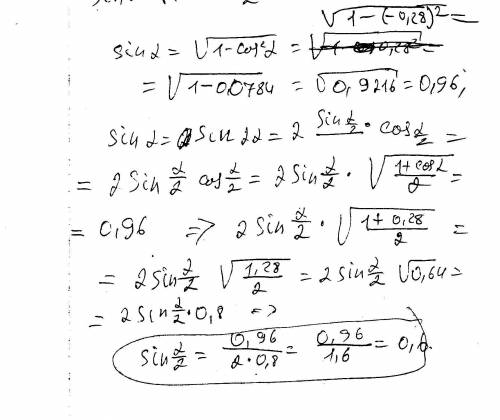 √(1-(-0,28)²) =
sin α = √(1-cos²α) =
= √(1-0,0784) = √(0,9216) = 0,96;
sin α = 2 sin 2α = 2 sin α/2 · cos α/2 =
= 2 sin α/2 cos α/2 = 2 sin α/2 · √((1+cos α)/2) =
= 0,96 ⇒ 2 sin α/2 · √((1+0,28)/2) =
= 2 sin α/2 √(1,28/2) = 2 sin α/2 √(0,64) =
= 2 sin α/2 · 0,8 ⇒
sin α/2 = 0,96/(2·0,8) = 0,96/1,6 =